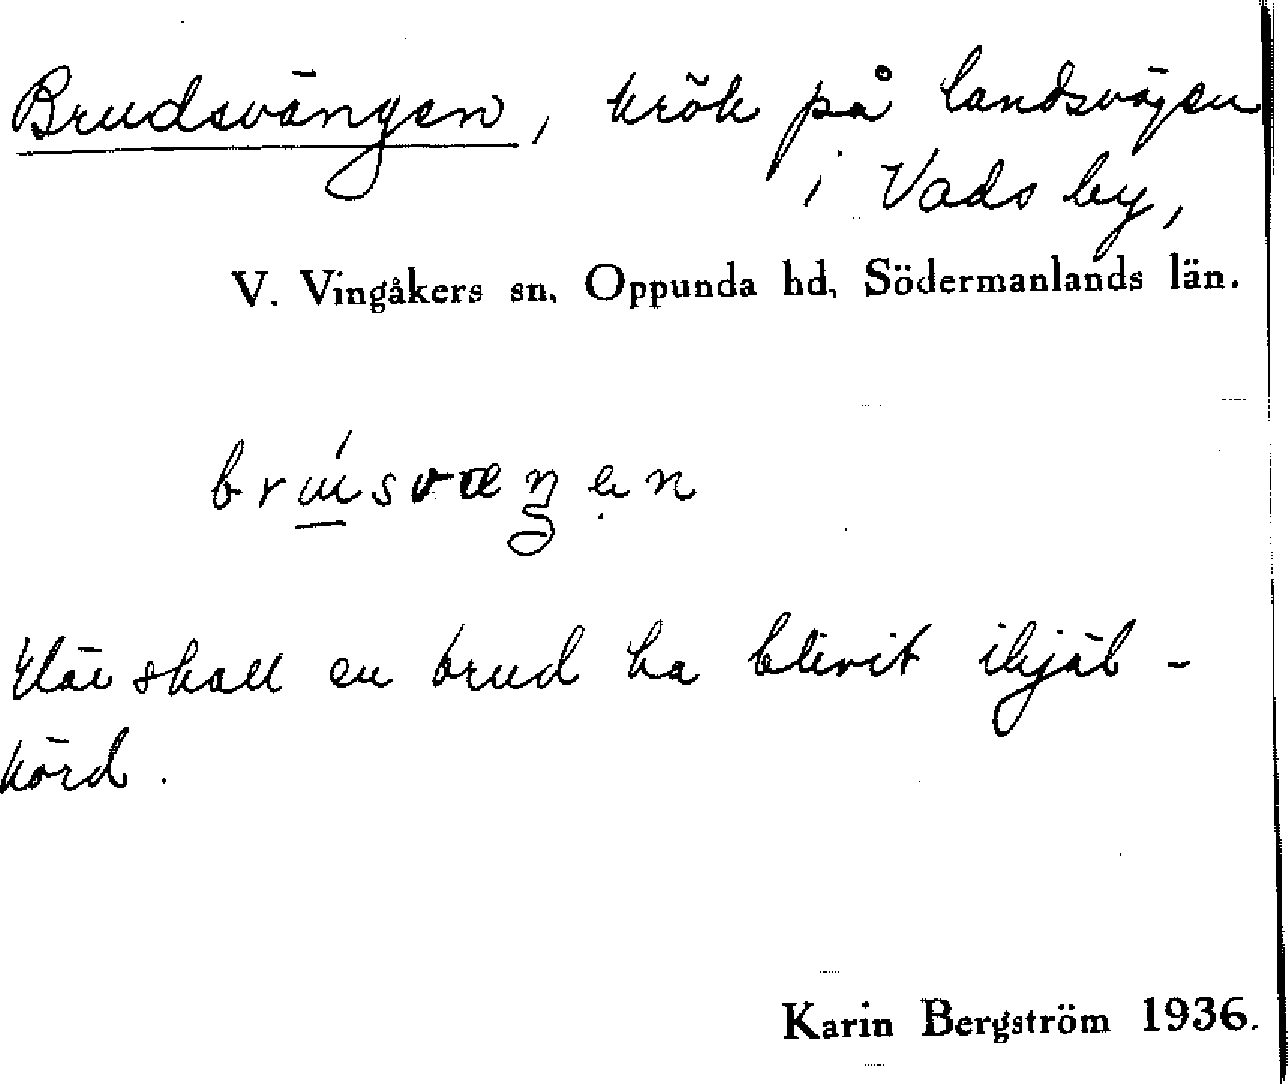 Brudsvängen, krök på landsvägen
i Vads by,
V. Vingåkers sn, Oppunda hd, Södermanlands län.
Här skall en brud ha blivit ihjäl-
körd.
Karin Bergström 1936.